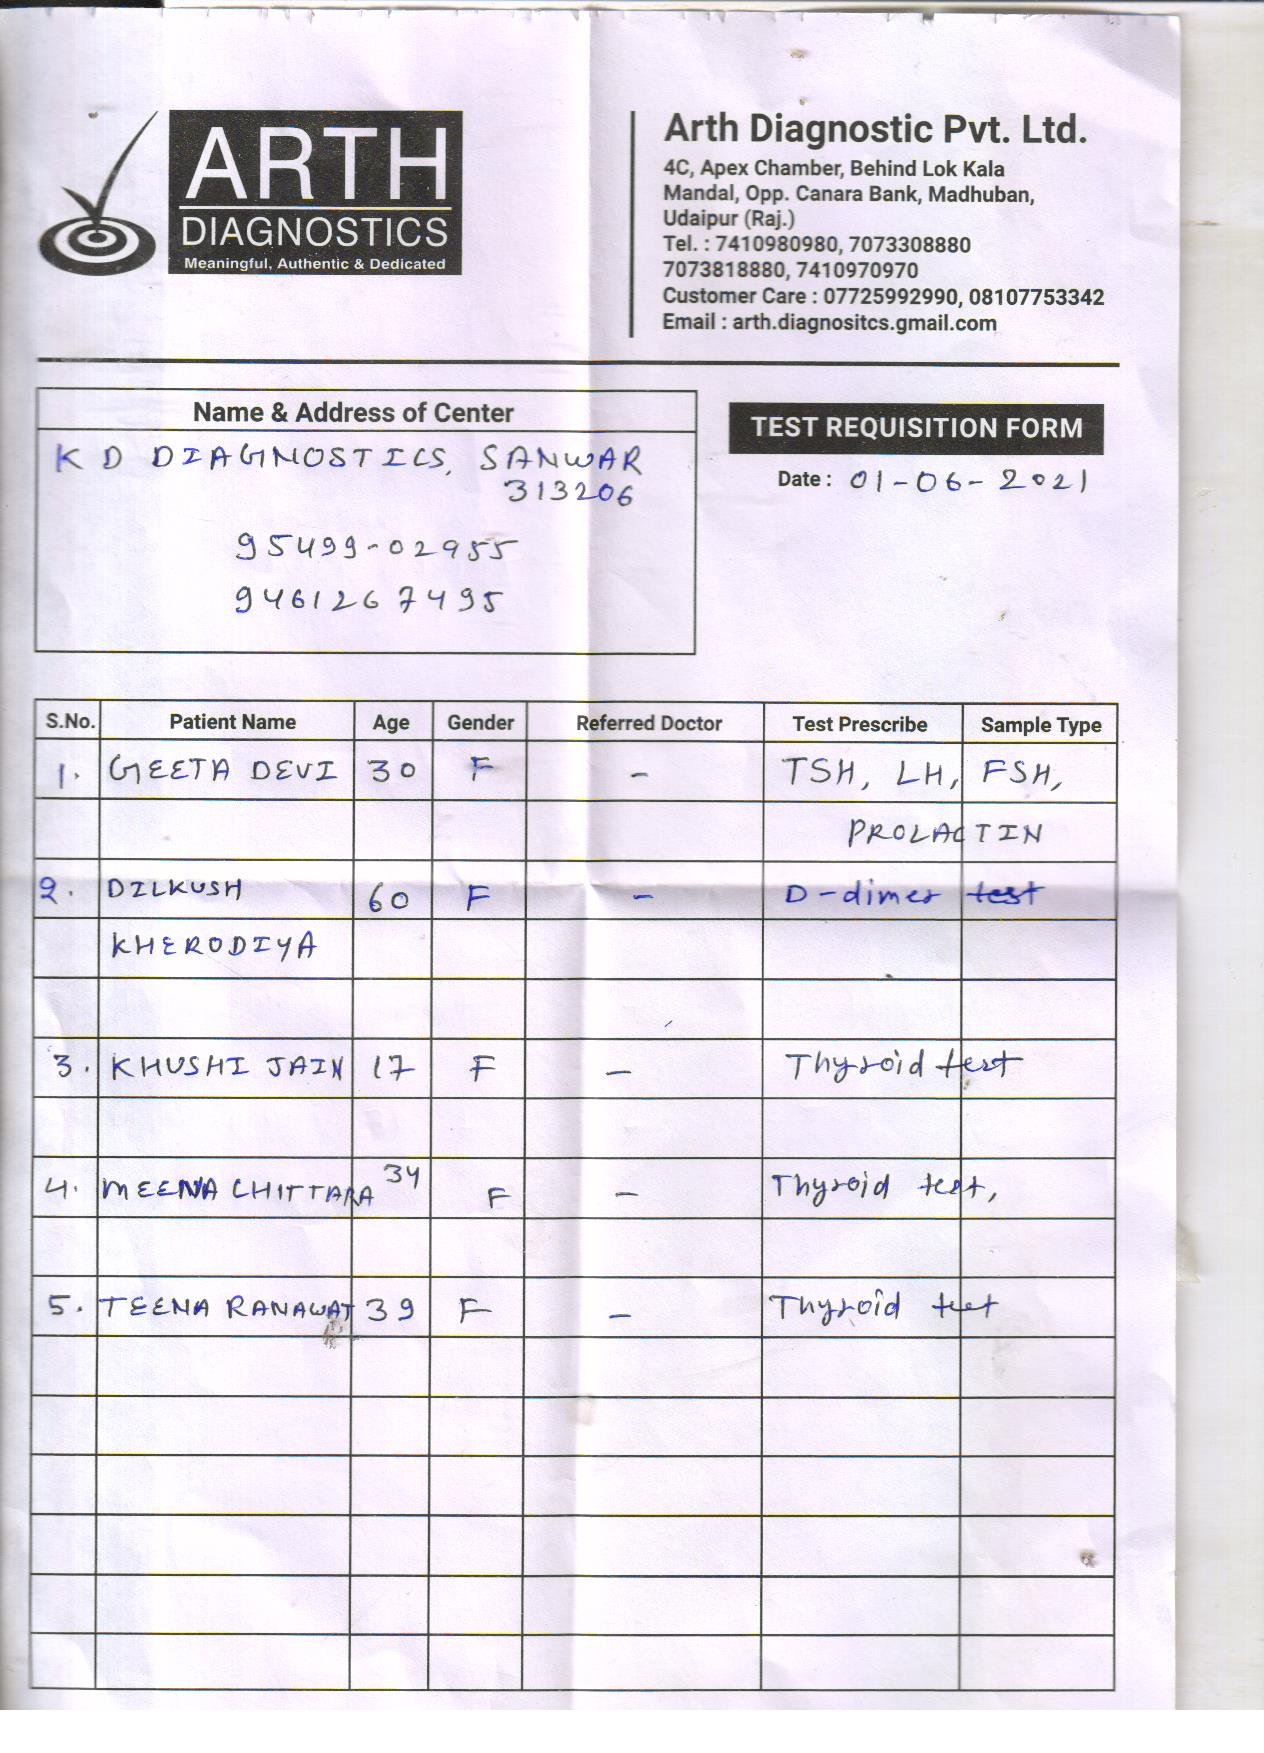 ARTH
DIAGNOSTICS
Meaningful, Authentic & Dedicated
Arth Diagnostic Pvt. Ltd.
4C, Apex Chamber, Behind Lok Kala
Mandal, Opp. Canara Bank, Madhuban,
Udaipur (Raj.)
Tel. : 7410980980, 7073308880
7073818880, 7410970970
Customer Care : 07725992990, 08107753342
Email : arth.diagnositcs.gmail.com
Name & Address of Center
KD DIAGNOSTICS, SANWAR
313206
95499-02955
9461267495
TEST REQUISITION FORM
Date : 01-06-2021
S.No. Patient Name Age Gender Referred Doctor Test Prescribe Sample Type
1. GEETA DEVI 30 F - TSH, LH, FSH,
PROLACTIN
2. DILKUSH 60 F - D-dimer test
KHERODIYA
3. KHUSHI JAIN 17 F - Thyroid test
4. MEENA CHITTARA 34 F - Thyroid test,
5. TEENA RANAWAT 39 F - Thyroid test